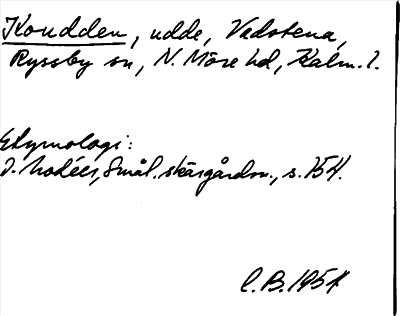 Koudden, udde, Vadstena,
Ryssby sn, N. Möre hd, Kalm. l.
Etymologi:
J. Modéer, Smål. skärgårdsn., s. 154.
C. B. 1954